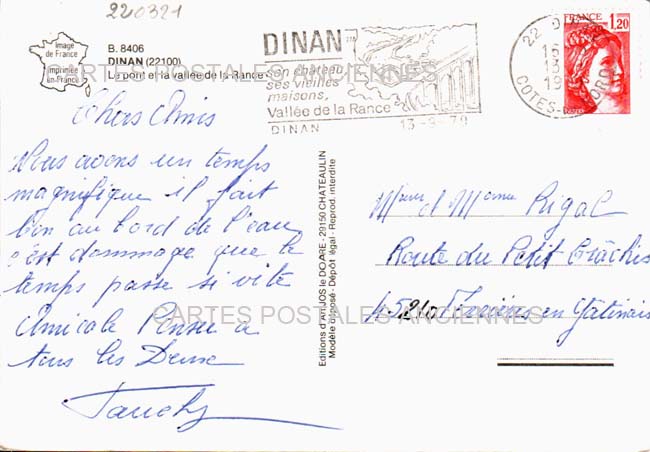 220321
Image
de France
Imprimée
en France
B. 8406
DINAN (22100)
Le pont et la vallée de la Rance
DINAN
son château
ses vieilles
maisons,
Vallée de la Rance
DINAN
13-9-79
22 DINAN
COTES-DU-NORD
FRANCE
1,20
CARTES POSTALES ANCIENNES
Chers Amis
Nous avons un temps
magnifique il fait
bon au bord de l'eau
c'est dommage que le
temps passe si vite
Amicale Pensée a
tous les Deux
Editions d'Art JOS le DOARE, 29150 CHATEAULIN
Modèle déposé - Dépôt légal - Reprod. interdite
Mr et Mme Rigal
Route du Petit
45210 en Gâtinais
CARTES POSTALES ANCIENNES